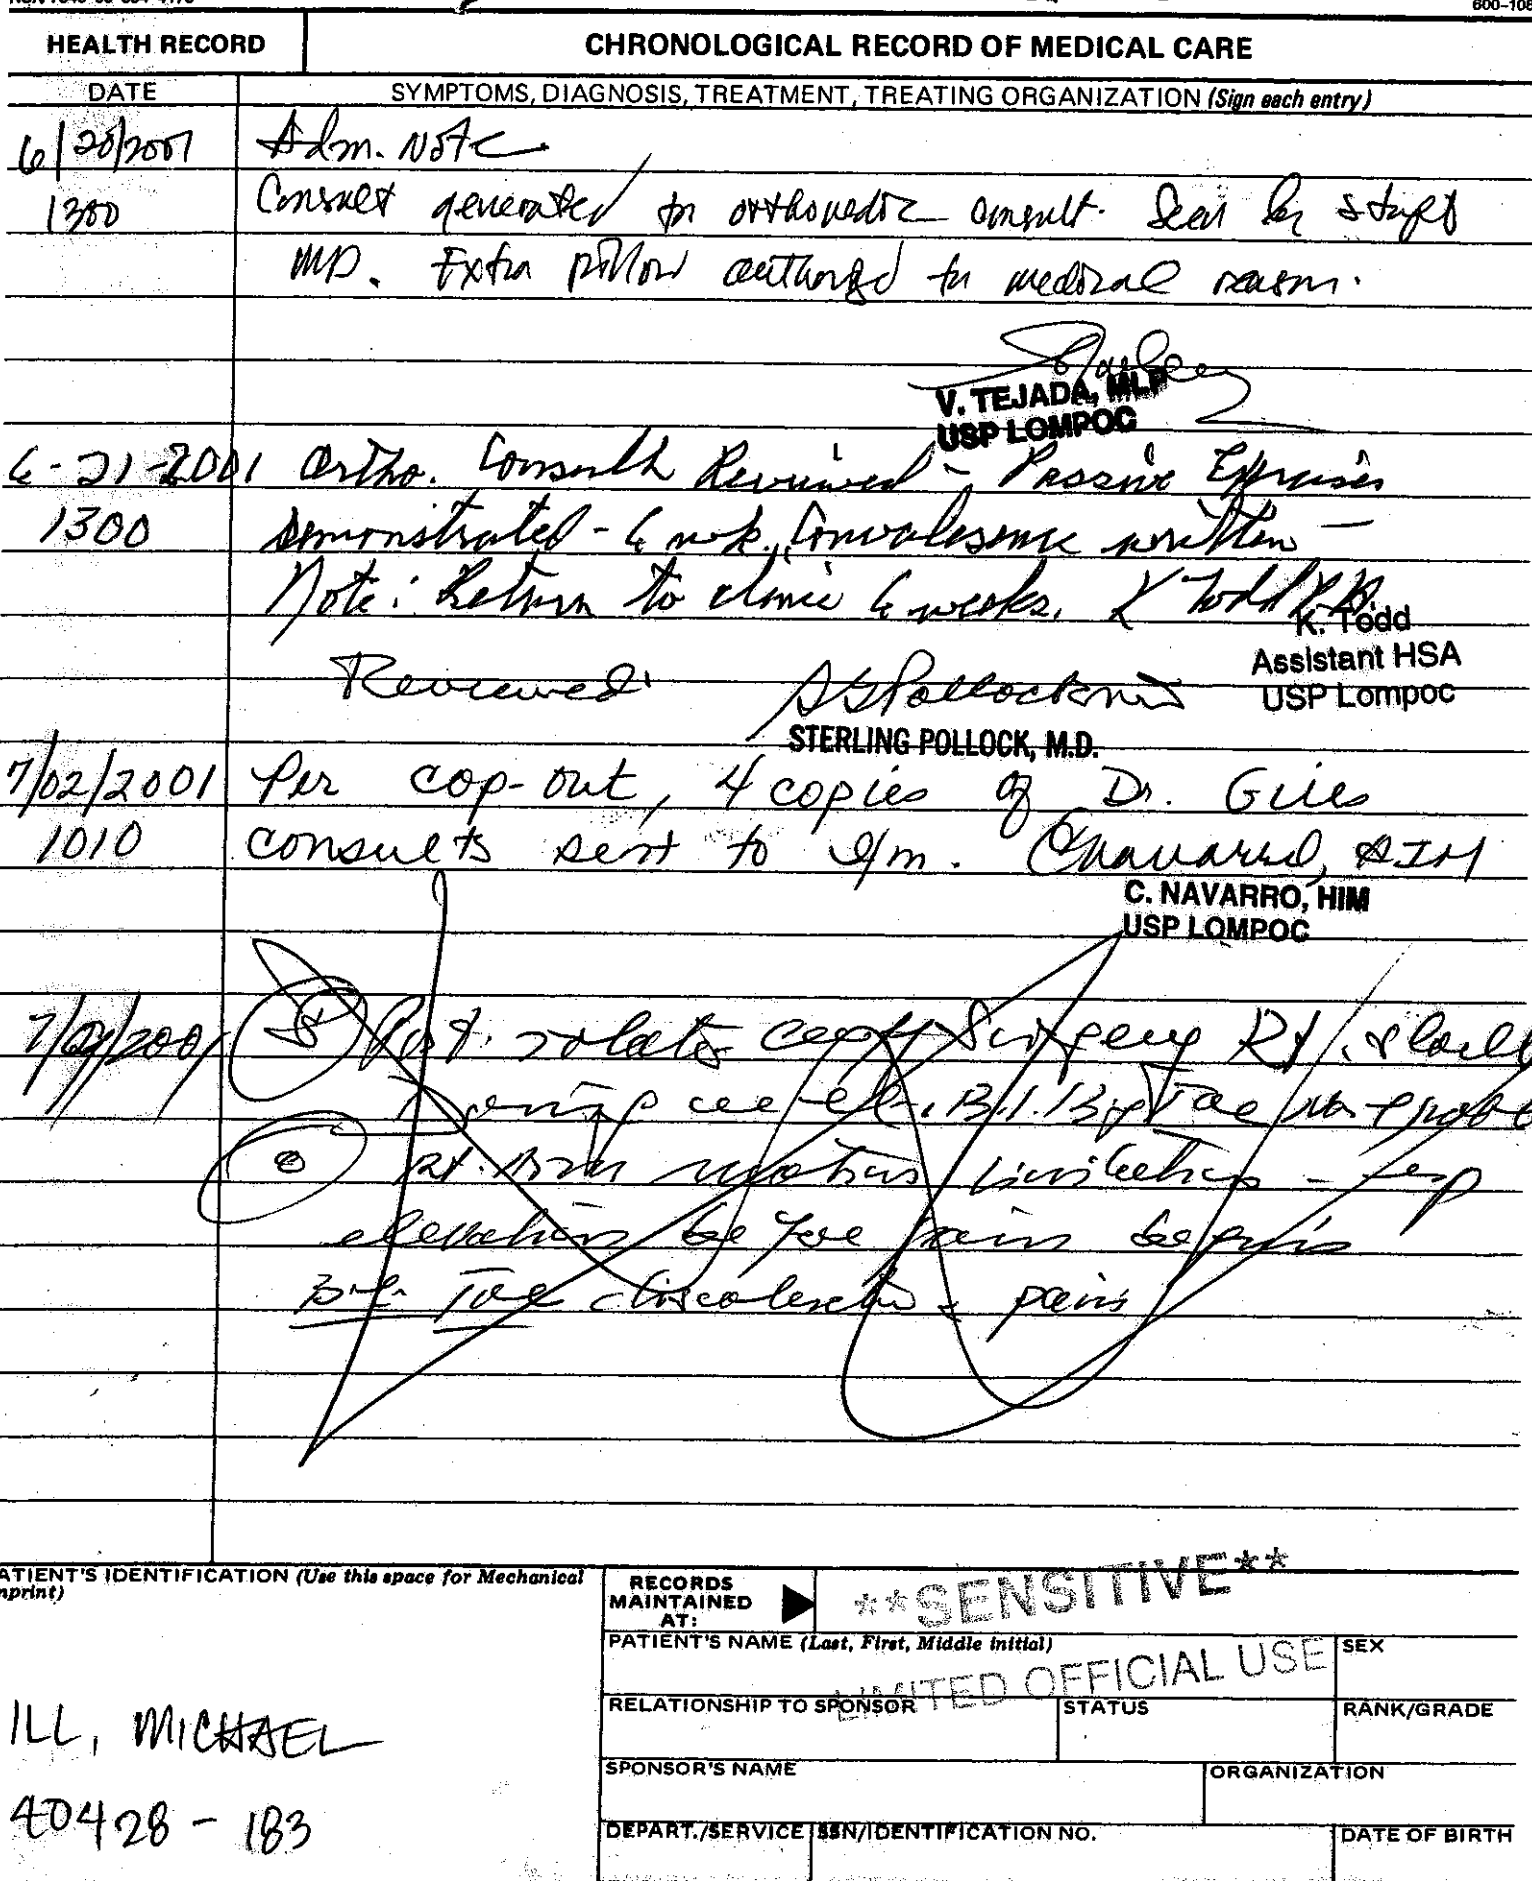 600-108
HEALTH RECORD
CHRONOLOGICAL RECORD OF MEDICAL CARE
DATE
SYMPTOMS, DIAGNOSIS, TREATMENT, TREATING ORGANIZATION (Sign each entry)
6/20/2001 Adm. Note
1300 Consult generated for orthopedic consult. Seen by staff
MD. Extra pillow for medical reason.
V. TEJADA, MLP
USP LOMPOC
6-21-2001 Ortho. Consult Reviewed - Passive Exercises
1300 demonstrated - 6 wk. Convalesence written -
Note: Return to clinic 6 weeks. K Todd
K. Todd
Assistant HSA
USP Lompoc
Reviewed SGPollock MD
STERLING POLLOCK, M.D.
7/02/2001 Per cop-out, 4 copies of Dr. Giles
1010 consults sent to I/m. CNavarro, HIM
C. NAVARRO, HIM
USP LOMPOC
S Post. cuff Surgery Rt.
Doing well. Big Toe
O Rt. Arm motion limitation -
elevation before pain begins
Big Toe discoloration - pain
ATIENT'S IDENTIFICATION (Use this space for Mechanical
mprint)
ILL, MICHAEL
40428-183
RECORDS
MAINTAINED
AT:
**SENSITIVE**
PATIENT'S NAME (Last, First, Middle initial)
SEX
LIMITED OFFICIAL USE
RELATIONSHIP TO SPONSOR
STATUS
RANK/GRADE
SPONSOR'S NAME
ORGANIZATION
DEPART./SERVICE
SSN/IDENTIFICATION NO.
DATE OF BIRTH